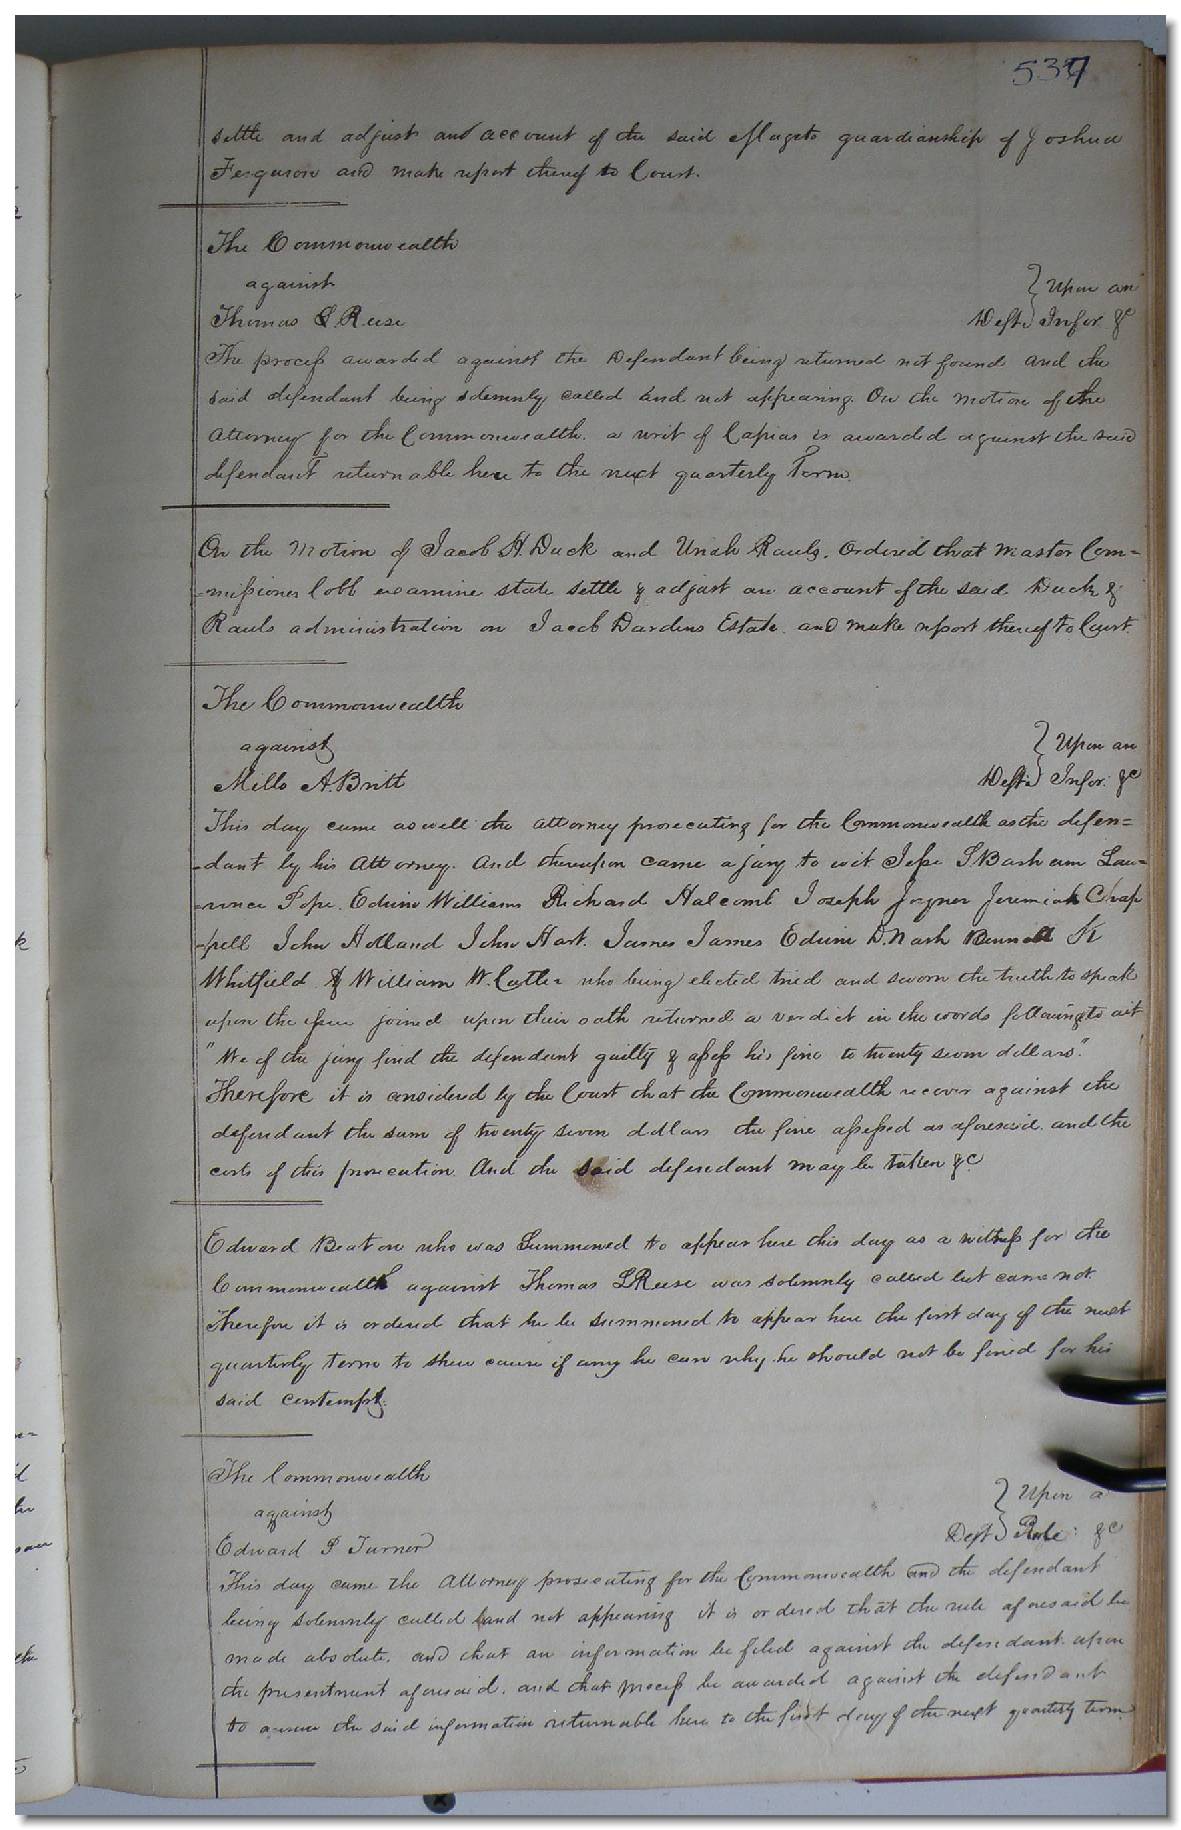 537
settle and adjust and account of the said guardianship of Joshua
Ferguson and make report thereof to Court.
The Commonwealth
against } Upon an
Thomas L Reese Deft. } Infor. &c
The process awarded against the Defendant being returned not found and the
said defendant being solemnly called and not appearing. On the motion of the
Attorney for the Commonwealth. a writ of Capias is awarded against the said
defendant returnable here to the next quarterly Term.
On the Motion of Jacob H. Duck and Uriah Rauls. Ordered that Master Com=
=missioner Cobb examine state settle & adjust an account of the said Duck &
Rauls administration on Jacob Dardens Estate. and make report thereof to Court.
The Commonwealth
against } Upon an
Mills A. Britt Deft. } Infor. &c
This day came aswell the Attorney prosecuting for the Commonwealth as the defen=
=dant by his Attorney. And thereupon came a jury to wit. Jesse S. Basham Law=
=rence Pope. Edwin Williams Richard Halcomb Joseph Joyner Jeremiah Chap
=pell John Holland John Hart. James James Edwin D. Nash Bennett K
Whitfield & William W. Cutler who being elected tried and sworn the truth to speak
upon the issue joined upon their oath returned a verdict in the words following to wit
"We of the jury find the defendant guilty & assess his fine to twenty seven dollars."
Therefore it is considered by the Court that the Commonwealth recover against the
defendant the sum of twenty seven dollars the fine assessed as aforesaid. and the
costs of this prosecution. And the said defendant may be taken &c
Edward Beaton who was Summoned to appear here this day as a witness for the
Commonwealth against Thomas L Reese was solemnly called but came not.
Therefore it is ordered that he be summoned to appear here the first day of the next
quarterly term to shew cause if any he can why he should not be fined for his
said contempt.
The Commonwealth
against } Upon a
Edward P Turner Deft } Rule &c
This day came the Attorney prosecuting for the Commonwealth and the defendant
being solemnly called and not appearing it is ordered that the rule aforesaid be
made absolute. and that an information be filed against the defendant upon
the presentment aforesaid. and that process be awarded against the defendant
to answer the said information returnable here to the first day of the next quarterly term.